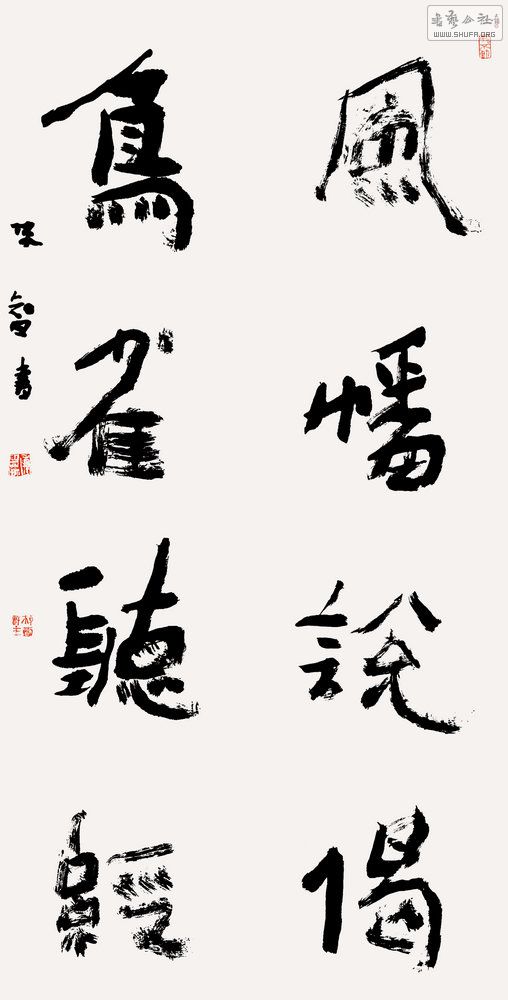 風幡說偈
鳥雀聽經
智書
書藝公社
WWW.SHUFA.ORG